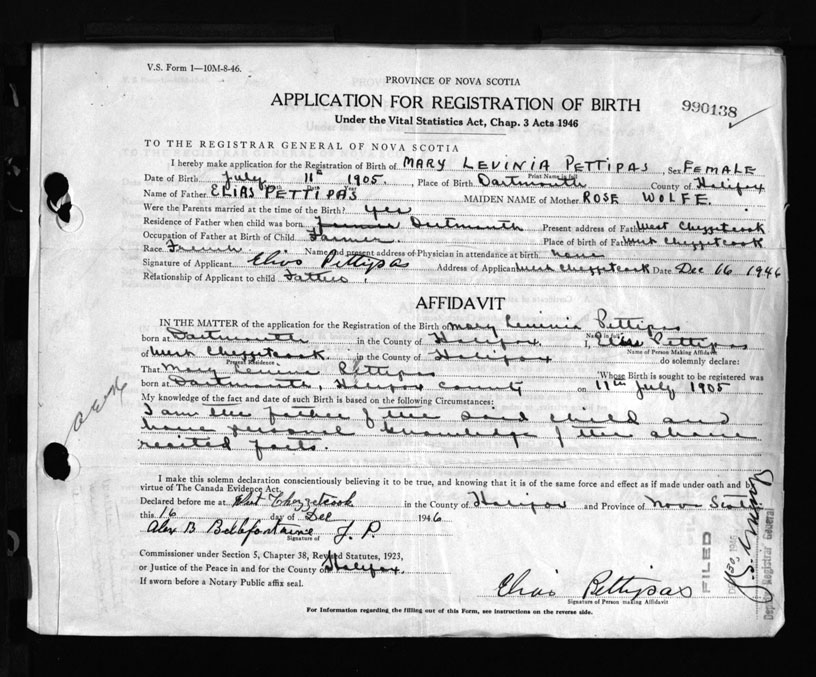 V.S. Form 1—10M-8-46.
PROVINCE OF NOVA SCOTIA
APPLICATION FOR REGISTRATION OF BIRTH
990138
Under the Vital Statistics Act, Chap. 3 Acts 1946
TO THE REGISTRAR GENERAL OF NOVA SCOTIA
I hereby make application for the Registration of Birth of MARY LEVINIA PETTIPAS, Sex FEMALE
Print Name in full
Date of Birth July 11th 1905. Place of Birth Dartmouth County of Halifax
Name of Father ELIAS PETTIPAS MAIDEN NAME of Mother ROSE WOLFE.
Were the Parents married at the time of the Birth? yes
Residence of Father when child was born Dartmouth Present address of Father West Chezzetcook
Occupation of Father at Birth of Child Farmer. Place of birth of Father West Chezzetcook
Race French. Name and present address of Physician in attendance at birth none
Signature of Applicant Elias Pettipas Address of Applicant West Chezzetcook Date Dec 16 1946
Relationship of Applicant to child Father,
AFFIDAVIT
IN THE MATTER of the application for the Registration of the Birth of Mary Levinia Pettipas
Name in full
born at Dartmouth in the County of Halifax. I, Elias Pettipas
Name of Person Making Affidavit
of West Chezzetcook. in the County of Halifax do solemnly declare:
Present Residence
That Mary Levinia Pettipas Whose Birth is sought to be registered was
born at Dartmouth, Halifax County on 11th July 1905
My knowledge of the fact and date of such Birth is based on the following Circumstances:
I am the father of the said child and
have personal knowledge of the above
recited facts.
I make this solemn declaration conscientiously believing it to be true, and knowing that it is of the same force and effect as if made under oath and by
virtue of The Canada Evidence Act.
Declared before me at West Chezzetcook in the County of Halifax and Province of Nova Scotia
this 16 day of Dec 1946
Alex B Bellefontaine J. P.
Signature of
Commissioner under Section 5, Chapter 38, Revised Statutes, 1923,
or Justice of the Peace in and for the County of Halifax.
If sworn before a Notary Public affix seal.
Elias Pettipas
Signature of Person making Affidavit
For Information regarding the filling out of this Form, see instructions on the reverse side.
FILED
Deputy Registrar General